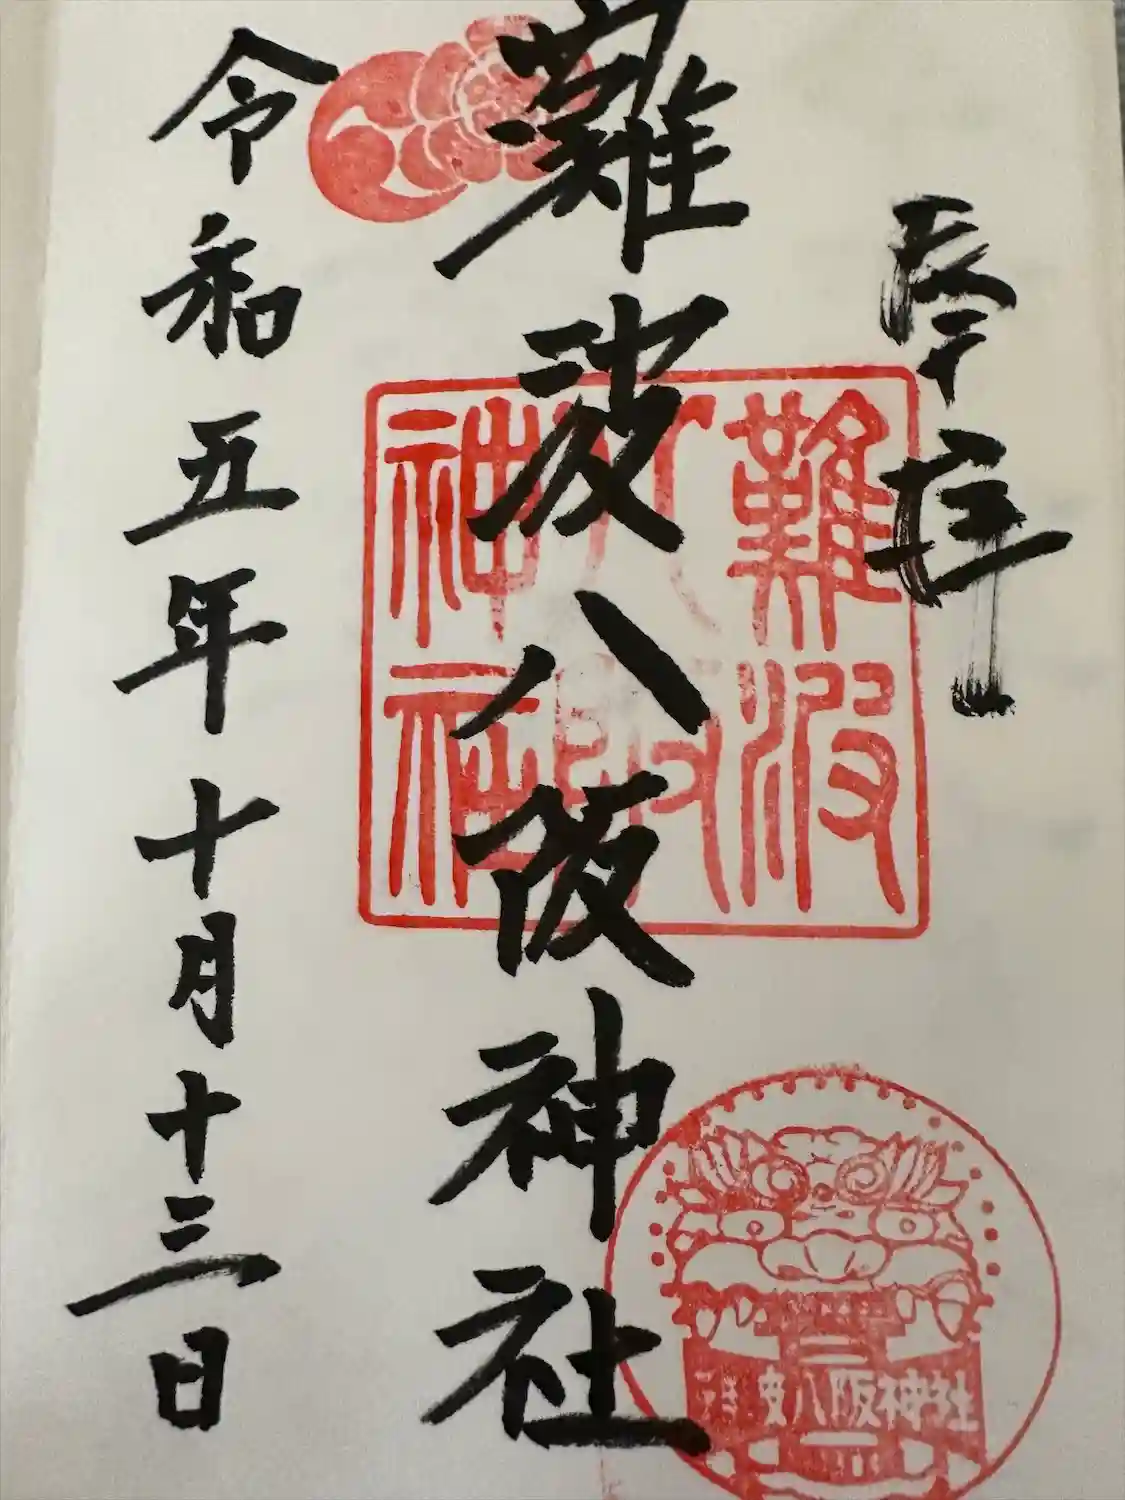 奉拝
難波八阪神社
難波八阪神社
令和五年十月十三日
難波八阪神社